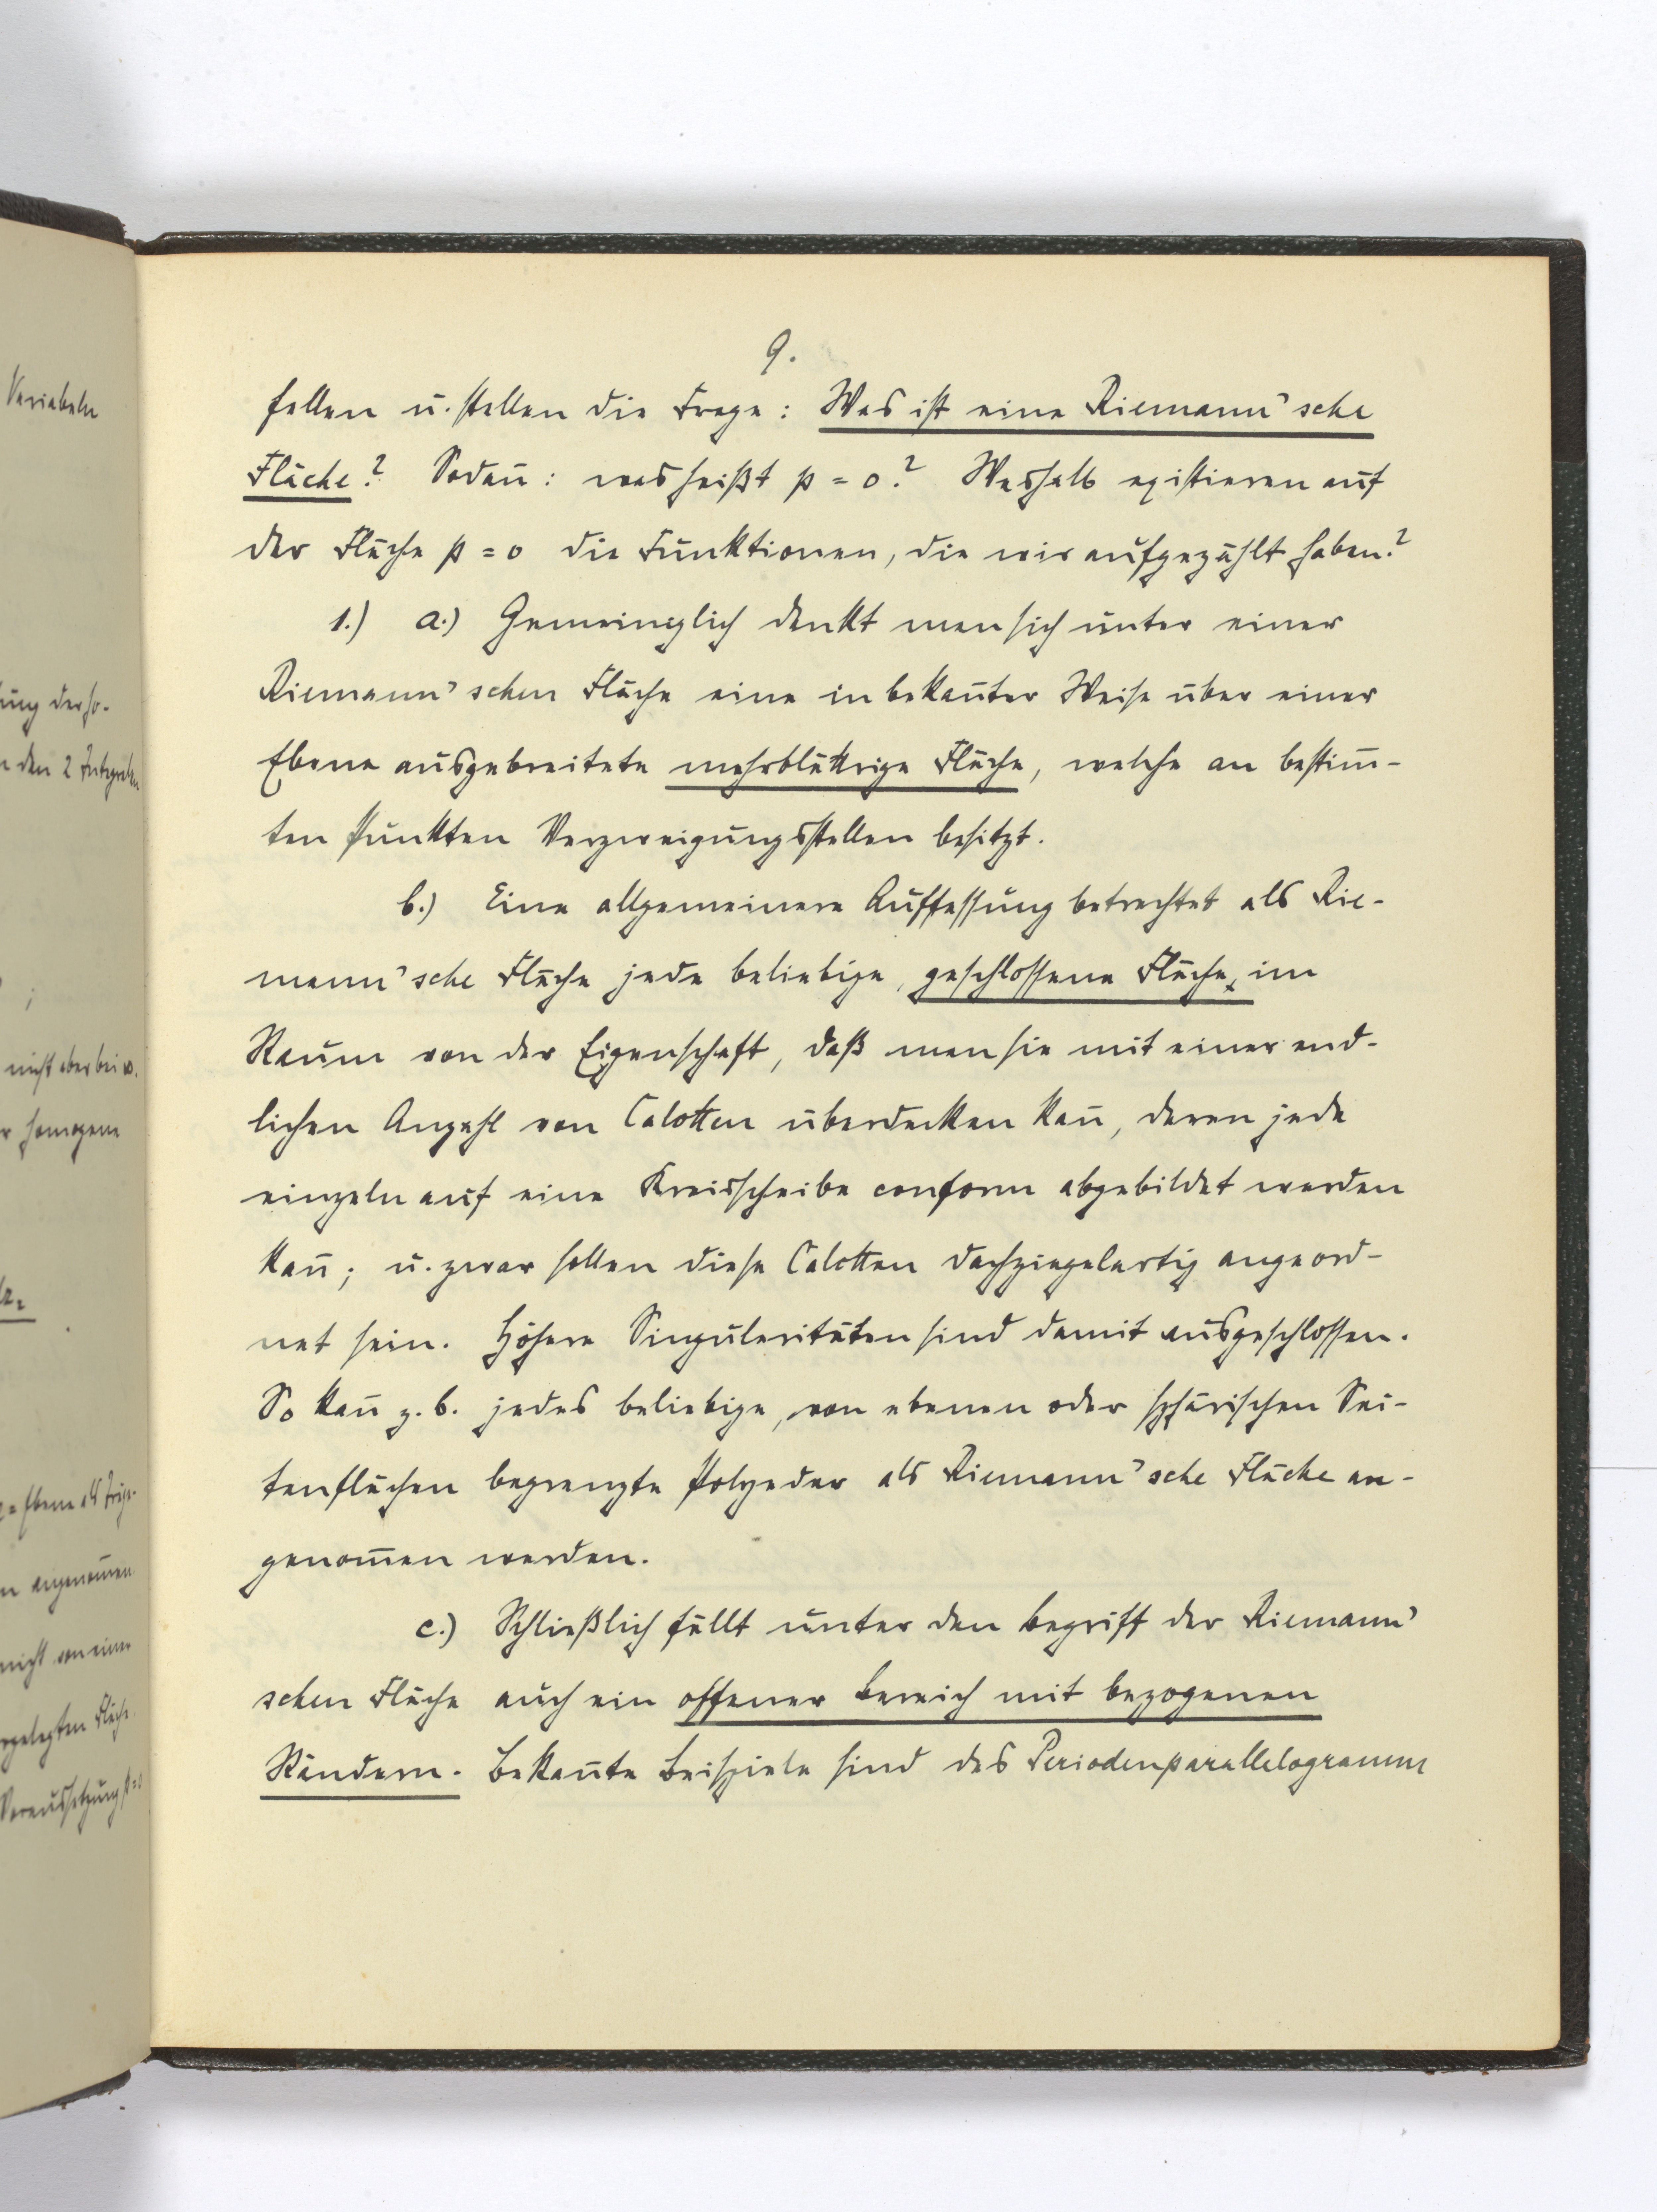 9.
fallen u. stellen die Frage: Was ist eine Riemann'sche
Fläche? Sodañ: was heißt p = 0? Weshalb existieren auf
der Fläche p = 0 die Funktionen, die wir aufgezählt haben?
1.) a.) Gemeiniglich denkt man sich unter einer
Riemann'schen Fläche eine in bekañter Weise über einer
Ebene ausgebreitete mehrblättrige Fläche, welche an bestim̄-
ten Punkten Verzweigungsstellen besitzt.
b.) Eine allgemeinere Auffassung betrachtet als Rie-
mann'sche Fläche jede beliebige, geschlossene Fläche, im
Raum von der Eigenschaft, daß man sie mit einer end-
lichen Anzahl von Calotten überdecken kañ, deren jede
einzeln auf eine Kreisscheibe conform abgebildet werden
kañ; u. zwar sollen diese Calotten dachziegelartig angeord-
net sein. Höhere Singularitäten sind damit ausgeschlossen.
So kañ z. b. jedes beliebige, von ebenen oder sphärischen Sei-
tenflächen begrenzte Polyeder als Riemann'sche Fläche an-
genom̄en werden.
c.) Schließlich fällt unter den Begriff der Riemann'
schen Fläche auch ein offener Bereich mit bezogenen
Rändern. Bekañte Beispiele sind das Periodenparallelogramm
Variabeln
nicht aber bei w.
homogene
angenom̄en
nicht von einer
Fläche
Voraussetzung p=0